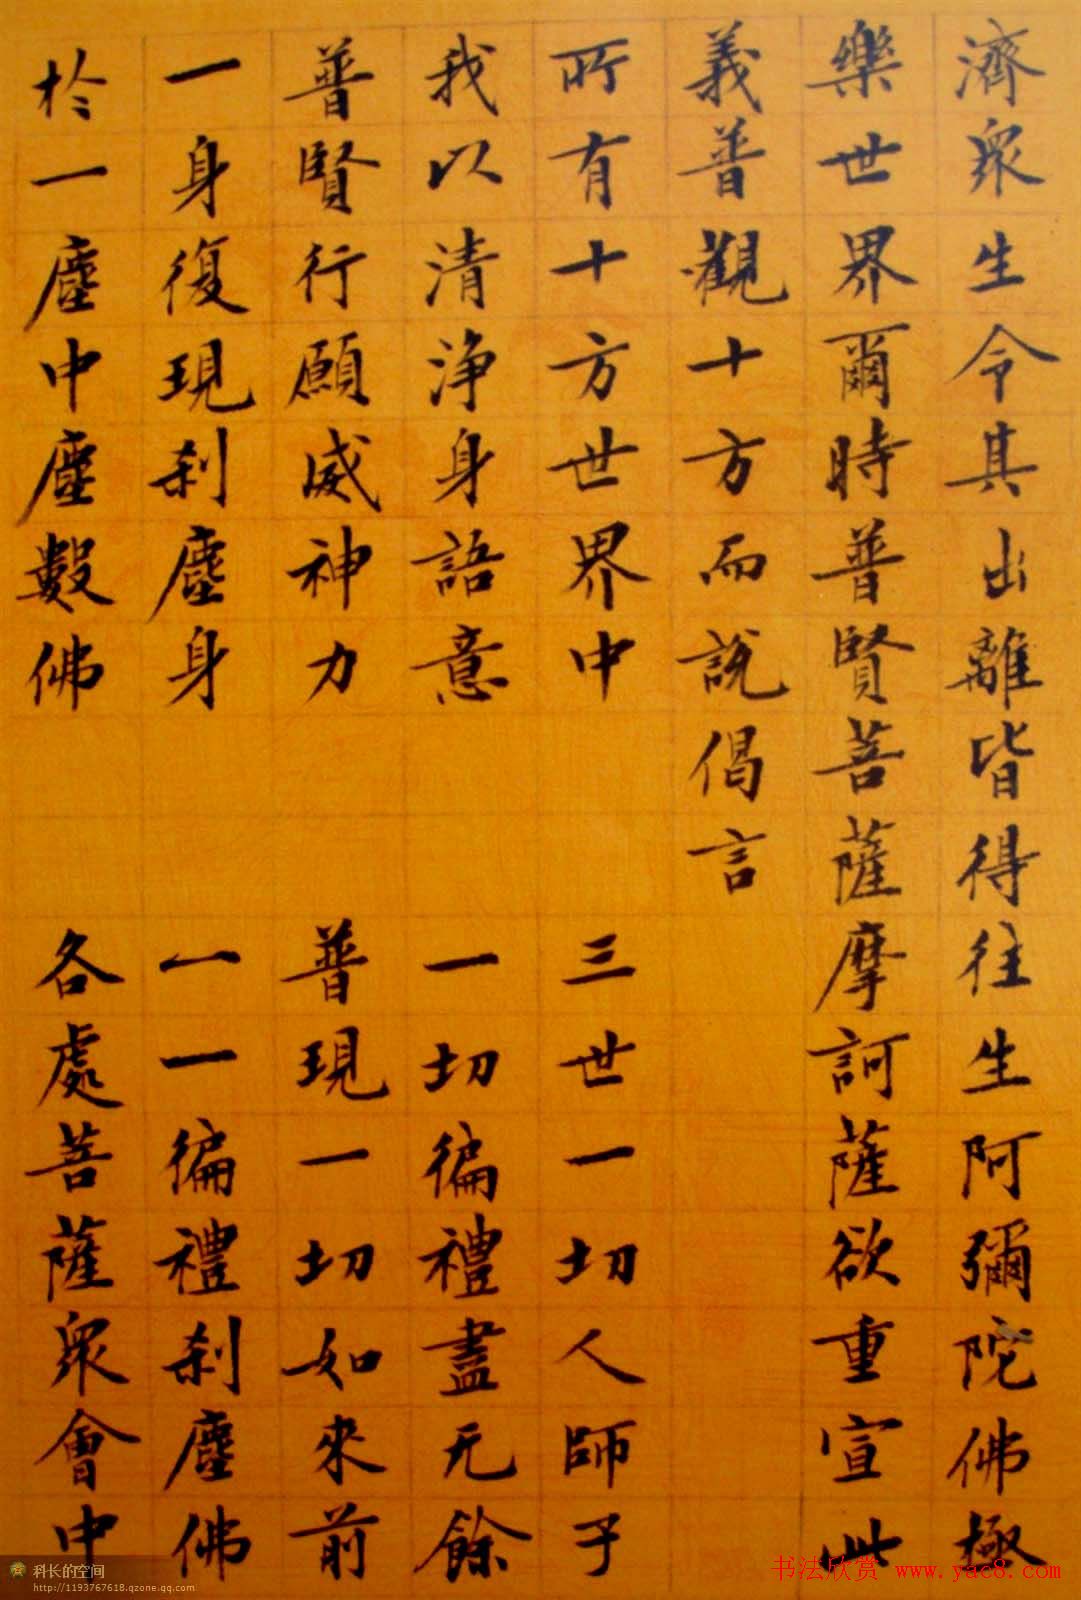 濟衆生令其出離皆得往生阿彌陀佛極
樂世界爾時普賢菩薩摩訶薩欲重宣此
義普觀十方而說偈言
所有十方世界中 三世一切人師子
我以清淨身語意 一切徧禮盡无餘
普賢行願威神力 普現一切如來前
一身復現刹塵身 一一徧禮刹塵佛
於一塵中塵數佛 各處菩薩衆會中
科长的空间
http://1193767618.qzone.qq.com
书法欣赏 www.yac8.com